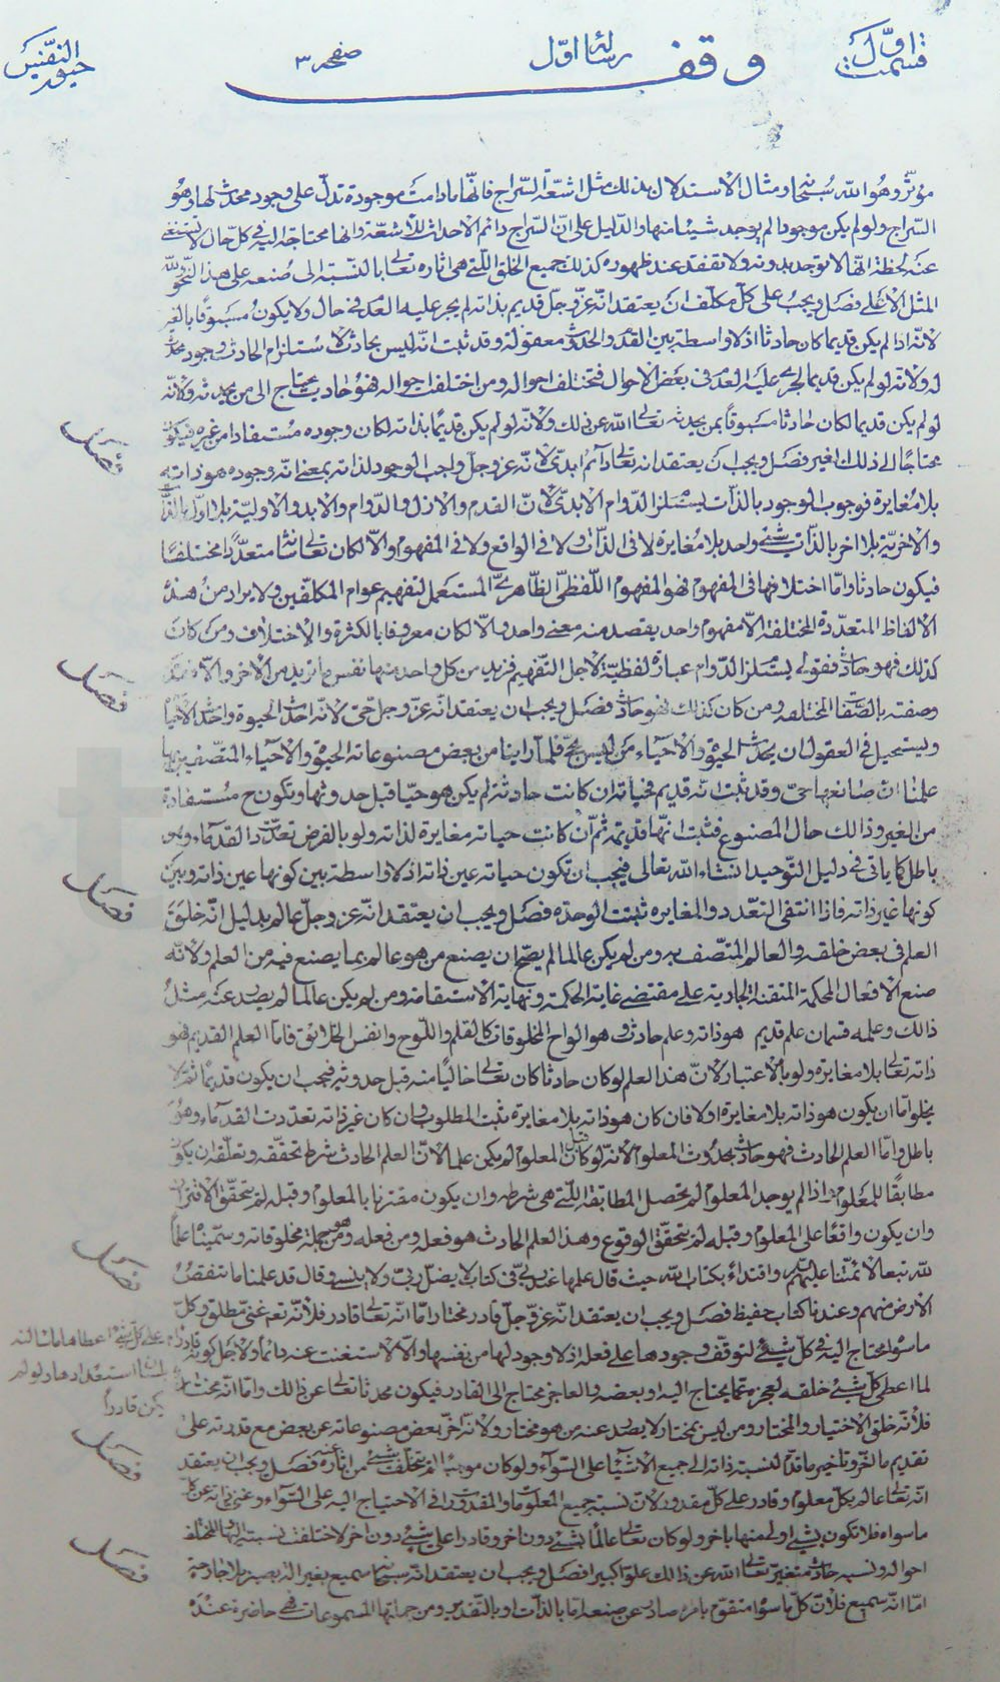 قسمت اوّل
وقف
رسالهٔ اوّل
صفحه ٣
حيوة النفس
مؤثّر وهو الله سُبحانه ومثال الاستدلال بذلك مثل اشعّة السّراج فانّها مادامت موجودة تدلّ على وجود محدث لها وهو
السّراج ولو لم يكن موجودا لم يوجد شيئا منها والدّليل على انّ السّراج دائم الاحداث للاشعّة وانها محتاجة اليه فى كلّ حال لا تستغنى
عنه لحظة انّها لا توجد بدونه ولا تفقد عند ظهوره كذلك جميع الخلق الّتى هى اثاره تعالى بالنّسبة الى صُنعه على هذا النّحو ولله
المثل الاعلى فصل ويجبُ على كلّ مكلّف ان يعتقد انّه عزّ وجلّ قديم بذاته لم يجر عليه العدم فى حال ولا يكون مسبوقا بالغير
لانّه اذا لم يكن قديما كان حادثا اذ لا واسطة بين القدم والحدوث معقولة وقد ثبت انّه ليس بحادث لاستلزام الحادث وجود محدث
له ولانّه لو لم يكن قديما لجرى عليه العدم فى بعض الاحوال فتختلف احواله ومن اختلفت احواله فهو حادث يحتاج الى من يحدثه ولانّه
لو لم يكن قديما لكان حادثا مسبوقا بمن يحدثه تعالى الله عن ذلك ولانّه لو لم يكن قديمًا بذاته لكان وجوده مستفادا من غيره فيكون
محتاجًا الى ذلك الغير فصل ويجب ان يعتقد انه تعالى دآئم ابدىّ لانّه عزّ وجلّ واجب الوجود لذاته بمعنى انّه وجوده هو ذاته
بلا مُغايرة فوجوب الوجود بالذّات يستلزم الدّوام الابدىّ لانّ القدم والازل والدّوام والابد والاوليّة بلا اوّل بالذّات
والاخريّة بلا اخر بالذّات شئ واحد بلا مُغايرة لا فى الذّات ولا فى الواقع ولا فى المفهوم والّا لكان تعالى شانه متعدّدًا مختلفًا
فيكون حادثا وامّا اختلافها فى المفهوم فهو المفهوم اللّفظىّ الظّاهرىّ المستعمل لتفهيم عوام المكلّفين ولا يراد من هذه
الالفاظ المتعدّدة المختلفة الّا مفهوم واحد يقصد منه معنى واحد والّا لكان معروفا بالكثرة والاختلاف ومن كان
كذلك فهو حادث فقولى يستلزم الدّوام عبارة لفظيّة لاجل التّفهيم فنريد من كلّ واحد منها نفس ما نريد من الاخر والّا
وصفته بالصّفات المختلفة ومن كان كذلك فهو حادث فصل ويجب ان يعتقد انّه عزّ وجلّ حىّ لانّه احدث الحيوة واحدث الاحياء
ويستحيل فى العقول ان يحدث الحيوة والاحياء من ليس بحىّ فلمّا راينا من بعض مصنوعاته الحيوة والاحياء المتّصفين بها
علمنا انّ صانعها حىّ وقد ثبت انّه قديم فحياته ان كانت حادثة لم يكن هو حيّا قبل حدوثها وتكون ح مستفادة
من الغير وذالك حال المصنوع فثبت انّها قديمة ثم ان كانت حياته مغايرة لذاته ولو بالفرض تعدّد القدماء وهو
باطل كما ياتى فى دليل التّوحيد انشاء الله تعالى فيجب ان تكون حياته عين ذاته اذ لا واسطة بين كونها عين ذاته وبين
كونها غير ذاته فاذا انتفى التعدّد والمغايره ثبتت الوحدة فصل ويجب ان يعتقد انّه عزّ وجلّ عالم بدليل انّه خلق
العلم فى بعض خلقه والعالم المتّصف به ومن لم يكن عالما لم يصحّ ان يصنع من هو عالم بما يصنع فيه من العلم ولانّه
صنع الافعال المحكمة المتقنة الجارية على مقتضى غاية الحكمة ونهاية الاستقامة ومن لم يكن عالما لم يصدر عنه مثل
ذالك وعلمه قسمان علم قديم هو ذاته وعلم حادث وهو الواح المخلوقات كالقلم واللّوح وانفس الخلائق فامّا العلم القديم فهو
ذاته تعالى بلا مغايرة ولو بالاعتبار لانّ هذا العلم لو كان حادثا كان تعالى خاليًا منه قبل حدوثه فيجب ان يكون قديمًا ثم لا
يخلوا امّا ان يكون هو ذاته بلا مغايرة او لا فان كان هو ذاته بلا مغايرة ثبت المطلوب وان كان غير ذاته تعدّدت القدماء وهو
باطل وامّا العلم الحادث فهو حادث بحدوث المعلوم لانّه لو كان قبل المعلوم لم يكن علما لانّ العلم الحادث شرط تحقّقه وتعلّقه ان يكون
مطابقًا للمعلوم واذا لم يوجد المعلوم لم تحصل المطابقة الّتى هى شرطه وان يكون مقترنا بالمعلوم وقبله لم يتحقّق الاقتران
وان يكون واقعًا على المعلوم وقبله لم يتحقّق الوقوع وهذا العلم الحادث هو فعله ومن فعله وهو من جملة مخلوقاته وسمّيناه علمًا
لله تبعا لائمّتنا عليهم السلام واقتداءً بكتاب الله حيث قال علمها عند ربّى فى كتاب لا يضلّ ربّى ولا ينسى وقال قد علمنا ما تنقص
الارض منهم وعندنا كتاب حفيظ فصل ويجب ان يعتقد انّه عزّ وجلّ قادر مختار امّا انّه تعالى قادر فلانّه تعالى غنى مطلق وكلّ
ما سواه محتاج اليه فى كلّ شئ لتوقّف وجودها على فعله اذ لا وجود لها من نفسها والّا لاستغنت عنه دائمًا ولاجل كونه قادرا على كلّ شئ اعطاها ما شائت
لما اعطى كلّ شئ خلقه لعجزه عمّا يحتاج اليه او بعضه والعاجز محتاج الى القادر فيكون محدثا تعالى عن ذالك وامّا انّه مختار
بلسان استعدادها ولو لم
يكن قادراً
فلانّه خلق الاختيار والمختار ومن ليس بمختار لا يصدر عنه من هو مختار ولانّه اخّر بعض مصنوعاته عن بعض مع قدرته على
تقديم ما اخّر وتأخير ما قدّم لنسبة ذاته الى جميع الاشياء على السّوآء ولو كان موجبا لم يتخلّف شئ من اثاره عنه فصل ويجب ان يعتقد
انّه تعالى عالم بكلّ معلوم وقادر على كلّ مقدور لانّ نسبة جميع المعلومات والمقدورات فى الاحتياج اليه على السّوآء وغنى ذاته عن كلّ
ما سواه فلا تكون بشئ اولى منها باخر ولو كان تعالى عالمًا بشئ دون اخر وقادرا على شئ دون اخر لاختلفت نسبته اليها واللمختلف
احواله ونسبه حادث متغيّر تعالى الله عن ذالك علوّا كبيرا فصل ويجب ان يعتقد انّه سبحانه سميع بغير الة بصير بلا جارحة
امّا انّه سميع فلانّ كلّ ما سواه متقوّم بامره صادر عن صنعه امّا بالذّات او بالتّقدير ومن جملتها المسموعات فهى حاضرة عنده
فصل
فصل
فصل
فصل
فصل
فصل